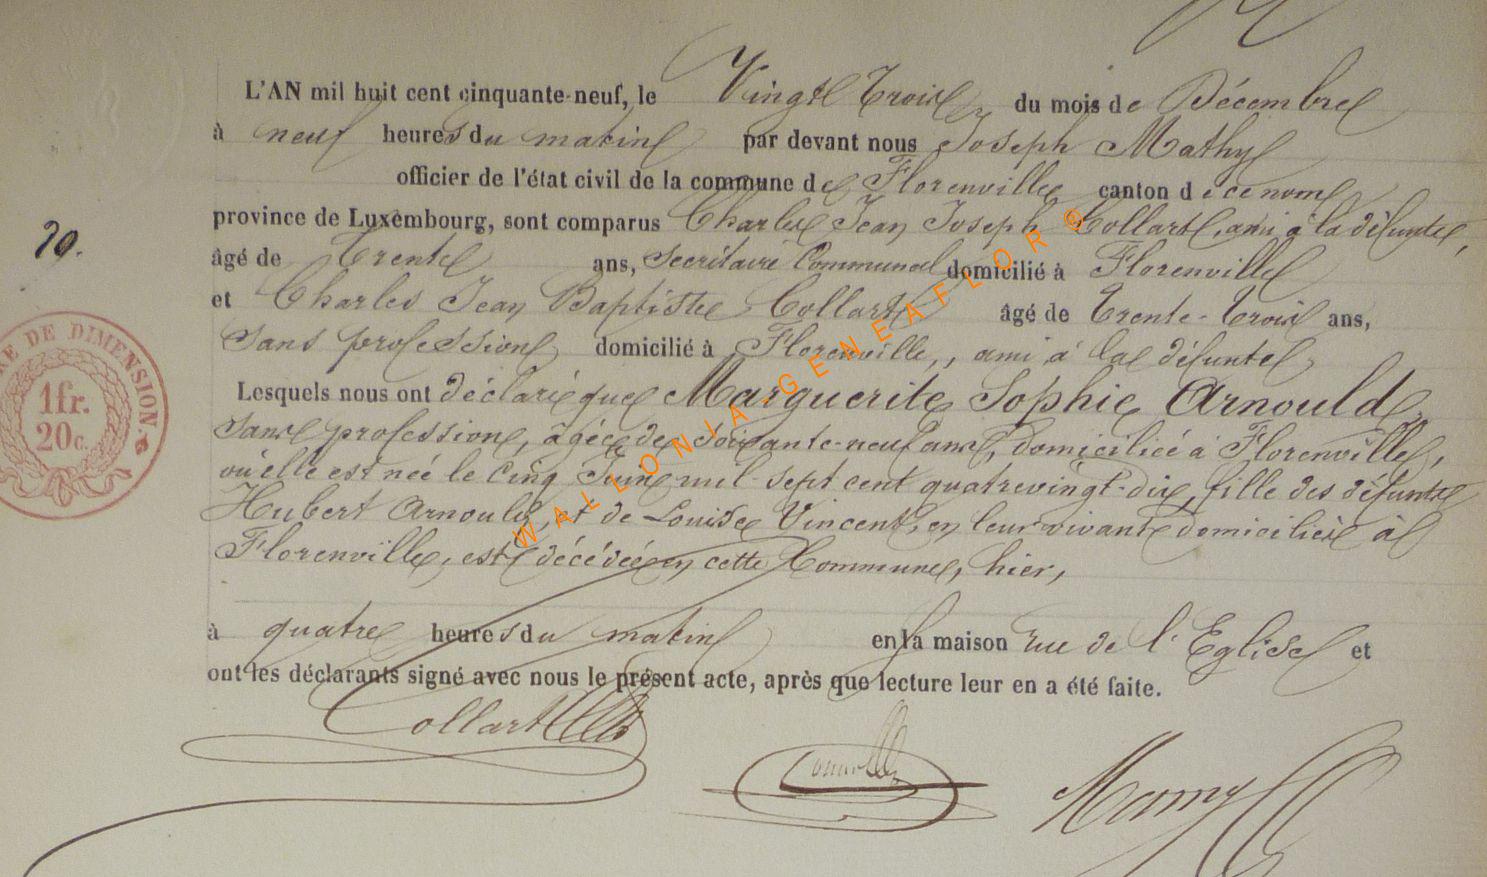 L'AN mil huit cent cinquante-neuf, le Vingt Trois, du mois de Décembre
à neuf heures du matin par devant nous Joseph Mathy
officier de l'état civil de la commune de Florenville canton de ce nom
province de Luxembourg, sont comparus Charles Jean Joseph Collart, ami à la défunte,
20.
âgé de Trente ans, Secrétaire Communal domicilié à Florenville
et Charles Jean Baptiste Collart âgé de Trente-Trois ans,
Sans profession domicilié à Florenville, ami à la défunte
Lesquels nous ont déclaré que Marguerite Sophie Arnould
Sans profession, âgée de soixante-neuf ans, domiciliée à Florenville,
où elle est née le Cinq Juin mil sept cent quatrevingt-dix, fille des défunts
Hubert Arnould et de Louise Vincent, en leur vivant domiciliés à
Florenville, est décédée en cette Commune, hier,
à quatre heures du matin en la maison rue de l'Eglise et
ont les déclarants signé avec nous le présent acte, après que lecture leur en a été faite.
Collart
DE DIMENSION.
1fr.
20c.
WALLONIA-GENEAFLOR ®